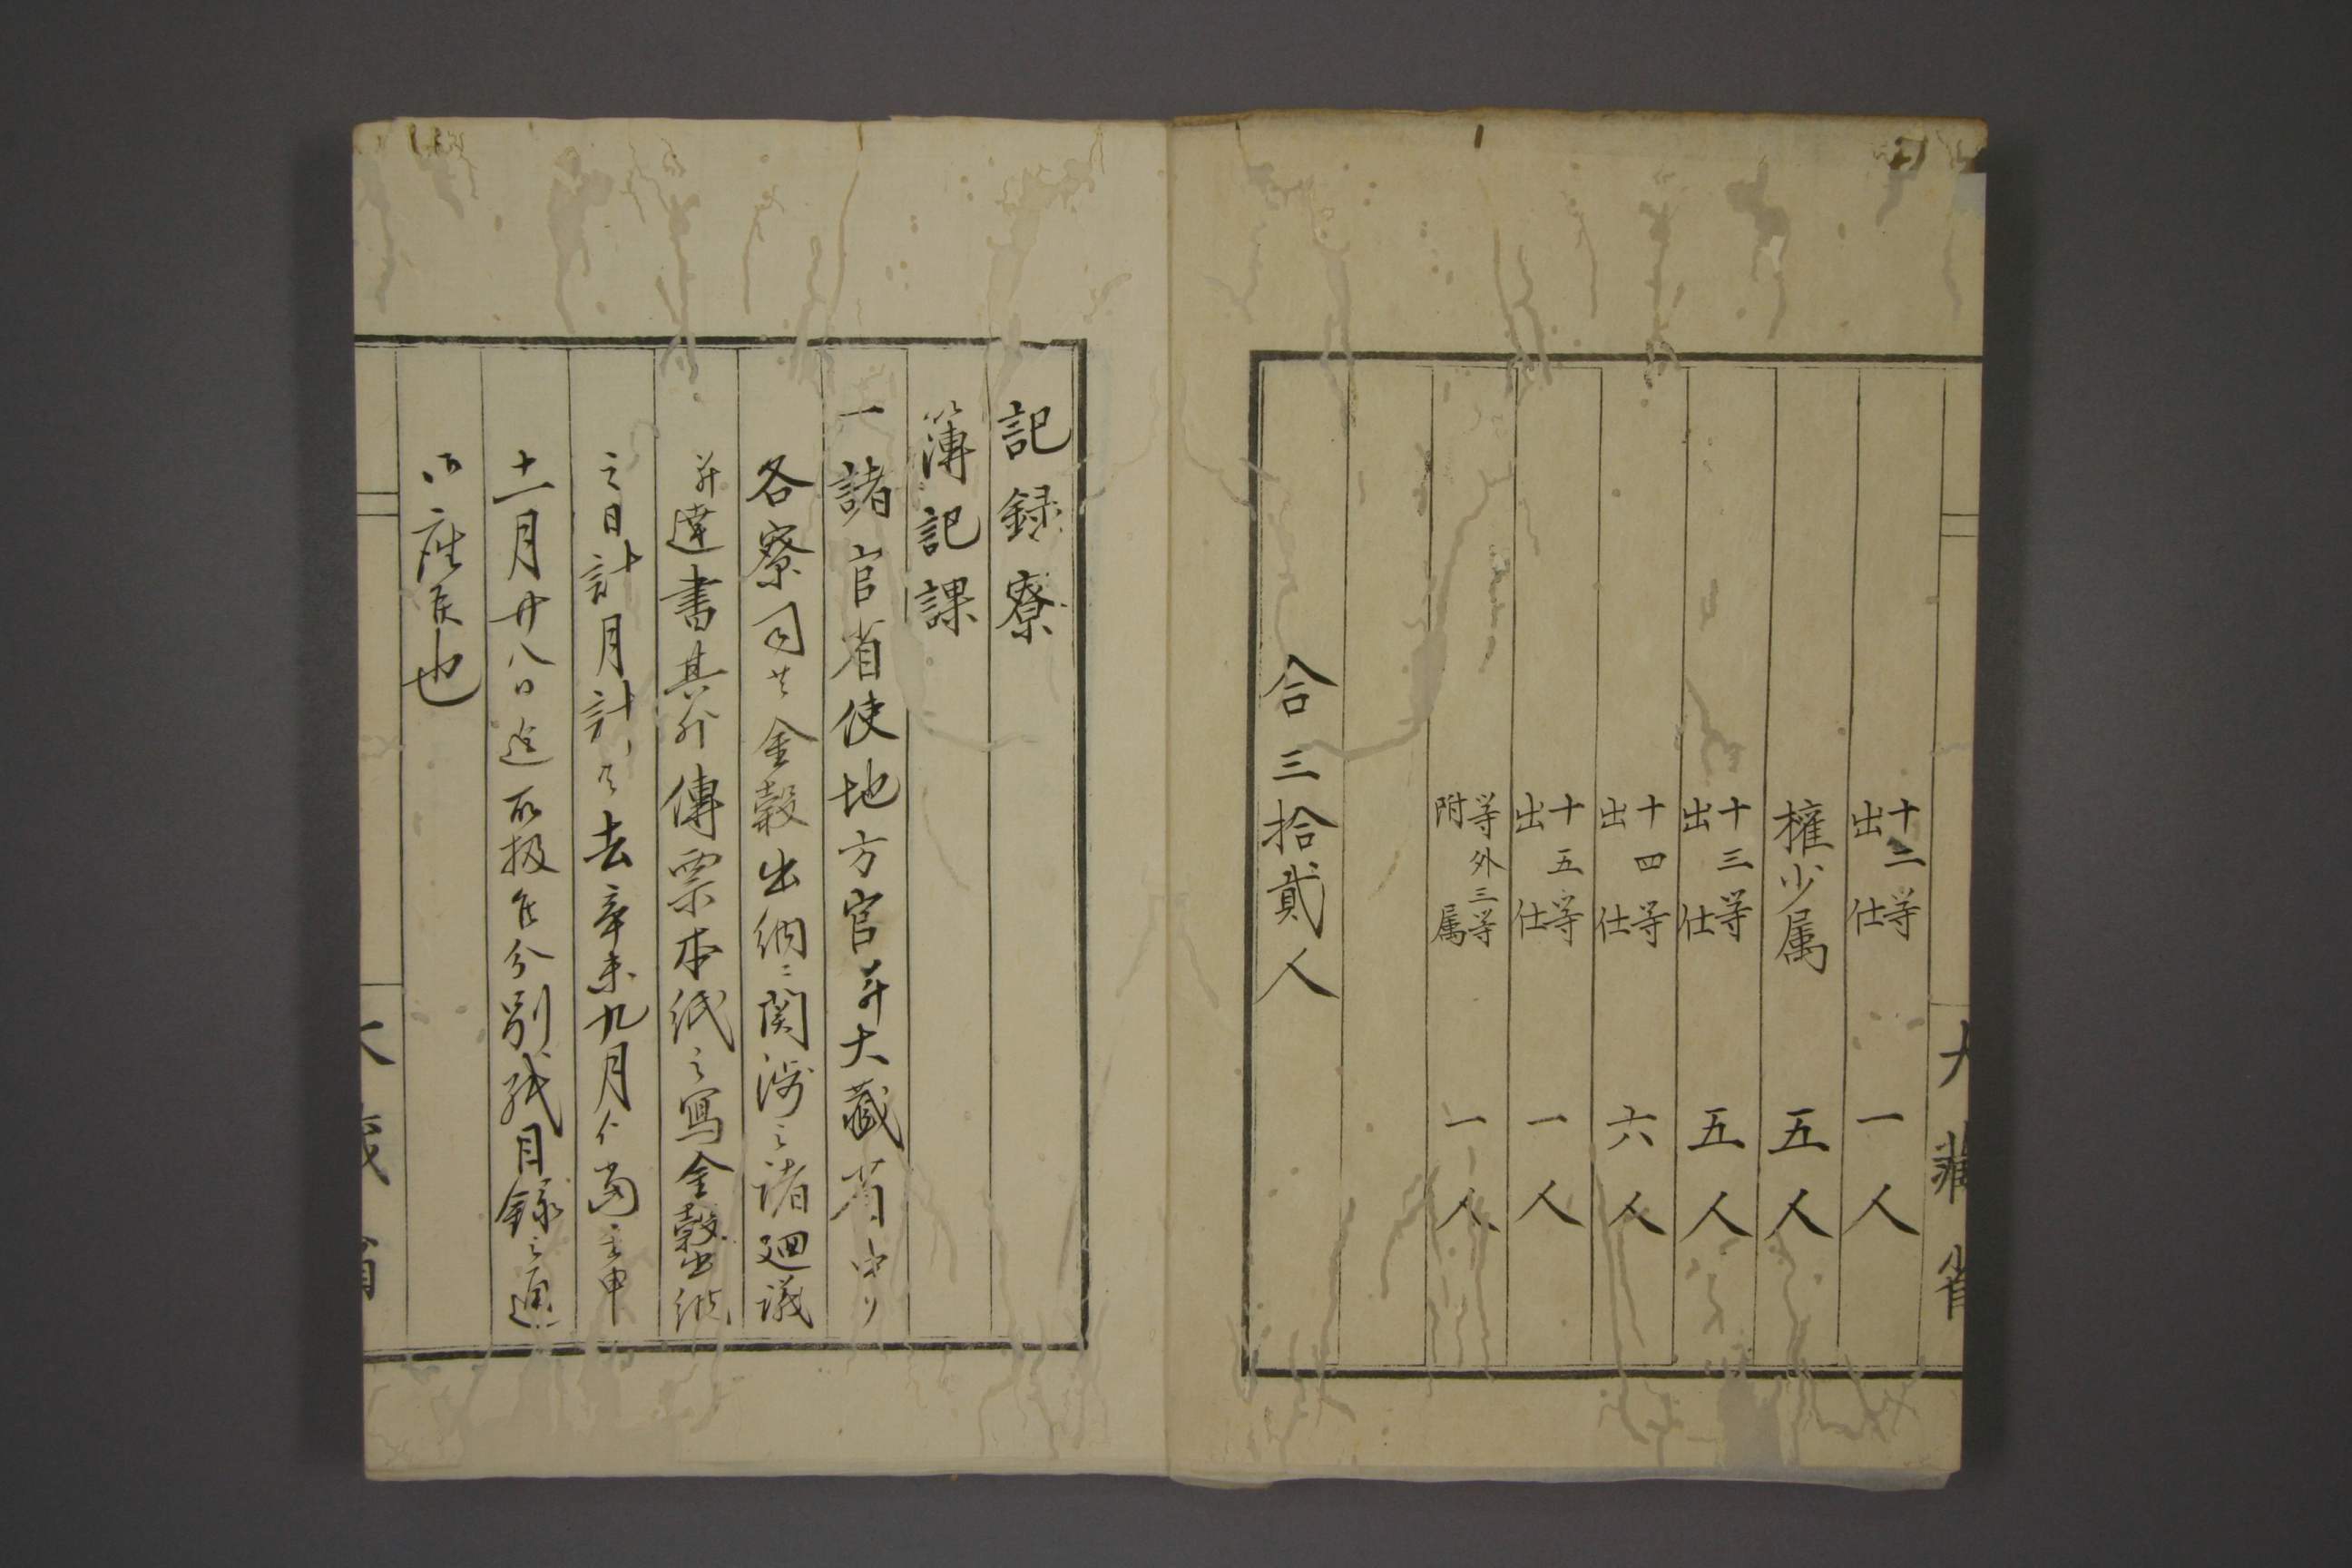 大藏省
十二等出仕 一人
権少属 五人
十三等出仕 五人
十四等出仕 六人
十五等出仕 一人
等外三等附属 一人
合三拾貳人
記録寮
簿記課
一諸官省使地方官并大藏省中ノ
各寮司共金穀出納ニ関渉之諸廻議
并達書其外傳票本紙之寫金穀出納
之日計月計共去辛未九月ゟ當壬申
十一月廿八日迠取扱候分別紙目録之通
御座候也
大藏省